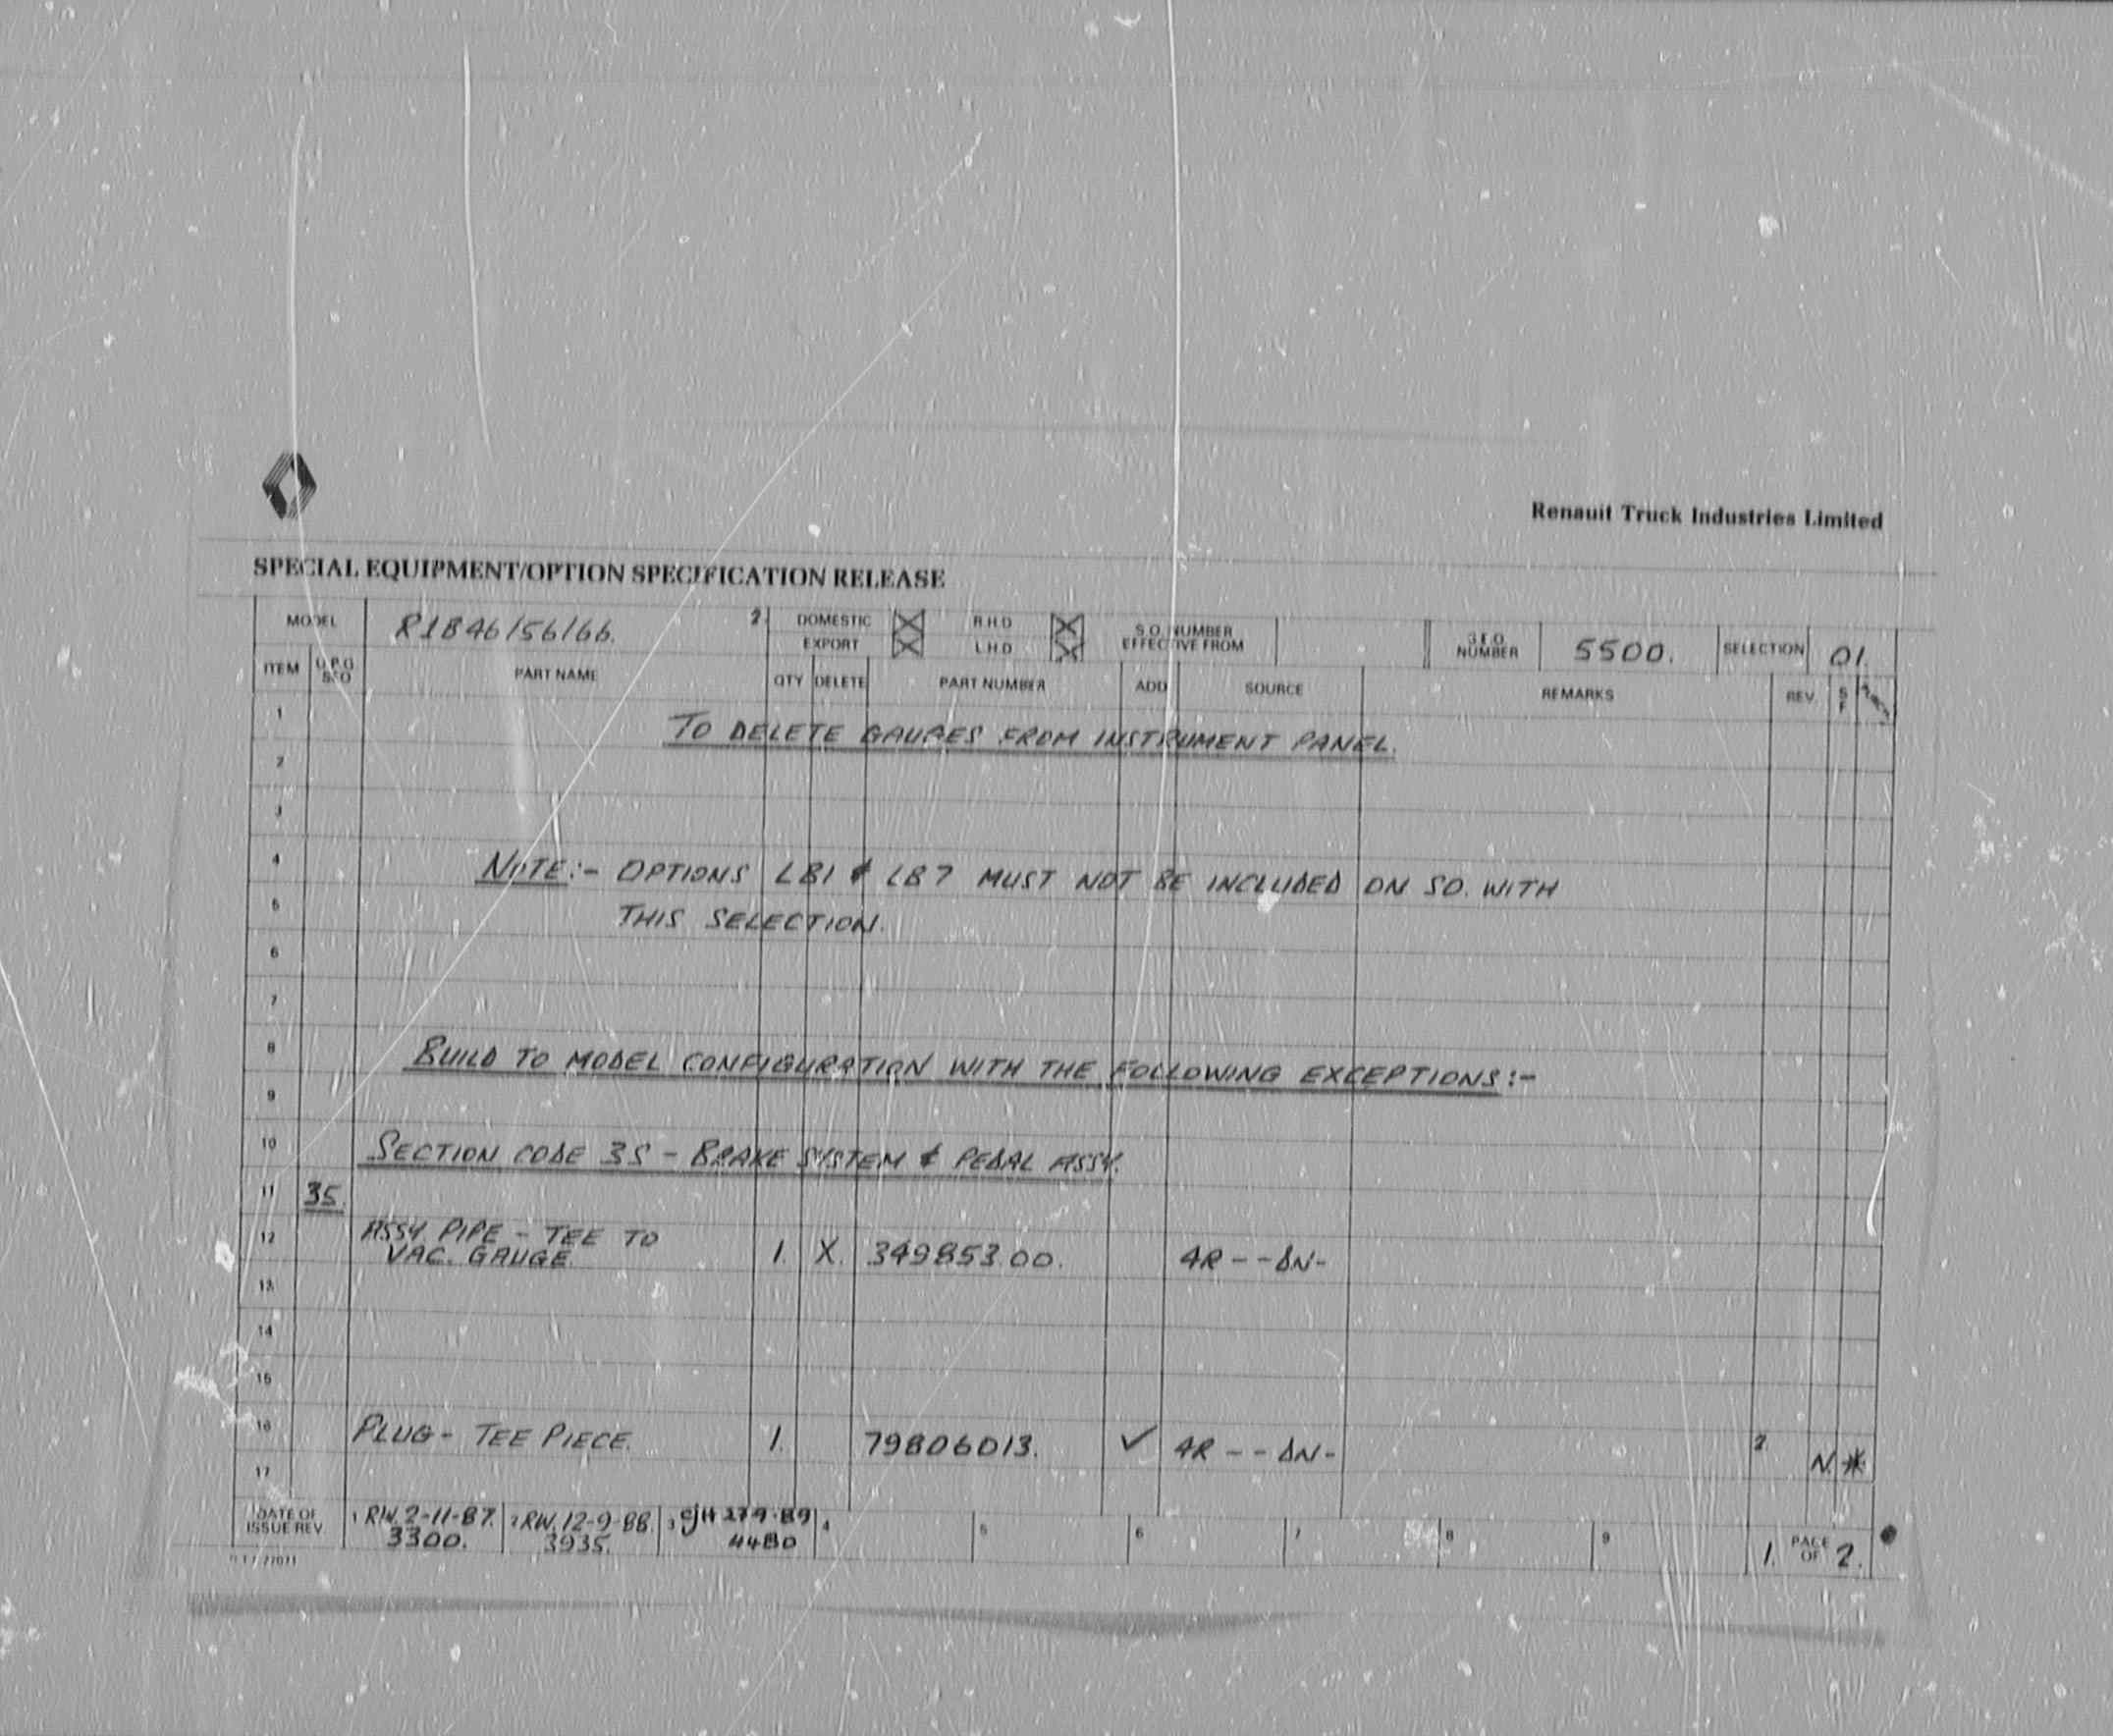 Renault Truck Industries Limited
SPECIAL EQUIPMENT/OPTION SPECIFICATION RELEASE
MODEL R1B46/56/66. 2 DOMESTIC R.H.D S.O. NUMBER S.E.O. NUMBER 5500. SELECTION 01.
EXPORT L.H.D EFFECTIVE FROM
ITEM PART NAME QTY DELETE PART NUMBER ADD SOURCE REMARKS REV. S F
1 TO DELETE GAUGES FROM INSTRUMENT PANEL.
2
3
4 NOTE:- OPTIONS LB1 & LB7 MUST NOT BE INCLUDED ON SO. WITH
5 THIS SELECTION.
6
7
8 BUILD TO MODEL CONFIGURATION WITH THE FOLLOWING EXCEPTIONS:-
9
10 SECTION CODE 35 - BRAKE SYSTEM & PEDAL ASSY.
11 35.
12 ASSY. PIPE - TEE TO
VAC. GAUGE. 1. X.349853.00. 4R - - ΔN -
13
14
15
16 PLUG - TEE PIECE. 1. 79806013. ✓ 4R - - ΔN - 2 N. *
17
DATE OF ISSUE REV. 1 RW. 2-11-87. 2 RW. 12-9-88. 3 27.9.89 4 5 6 7 8 9
3300. 3935. 4480 1. PAGE OF 2.